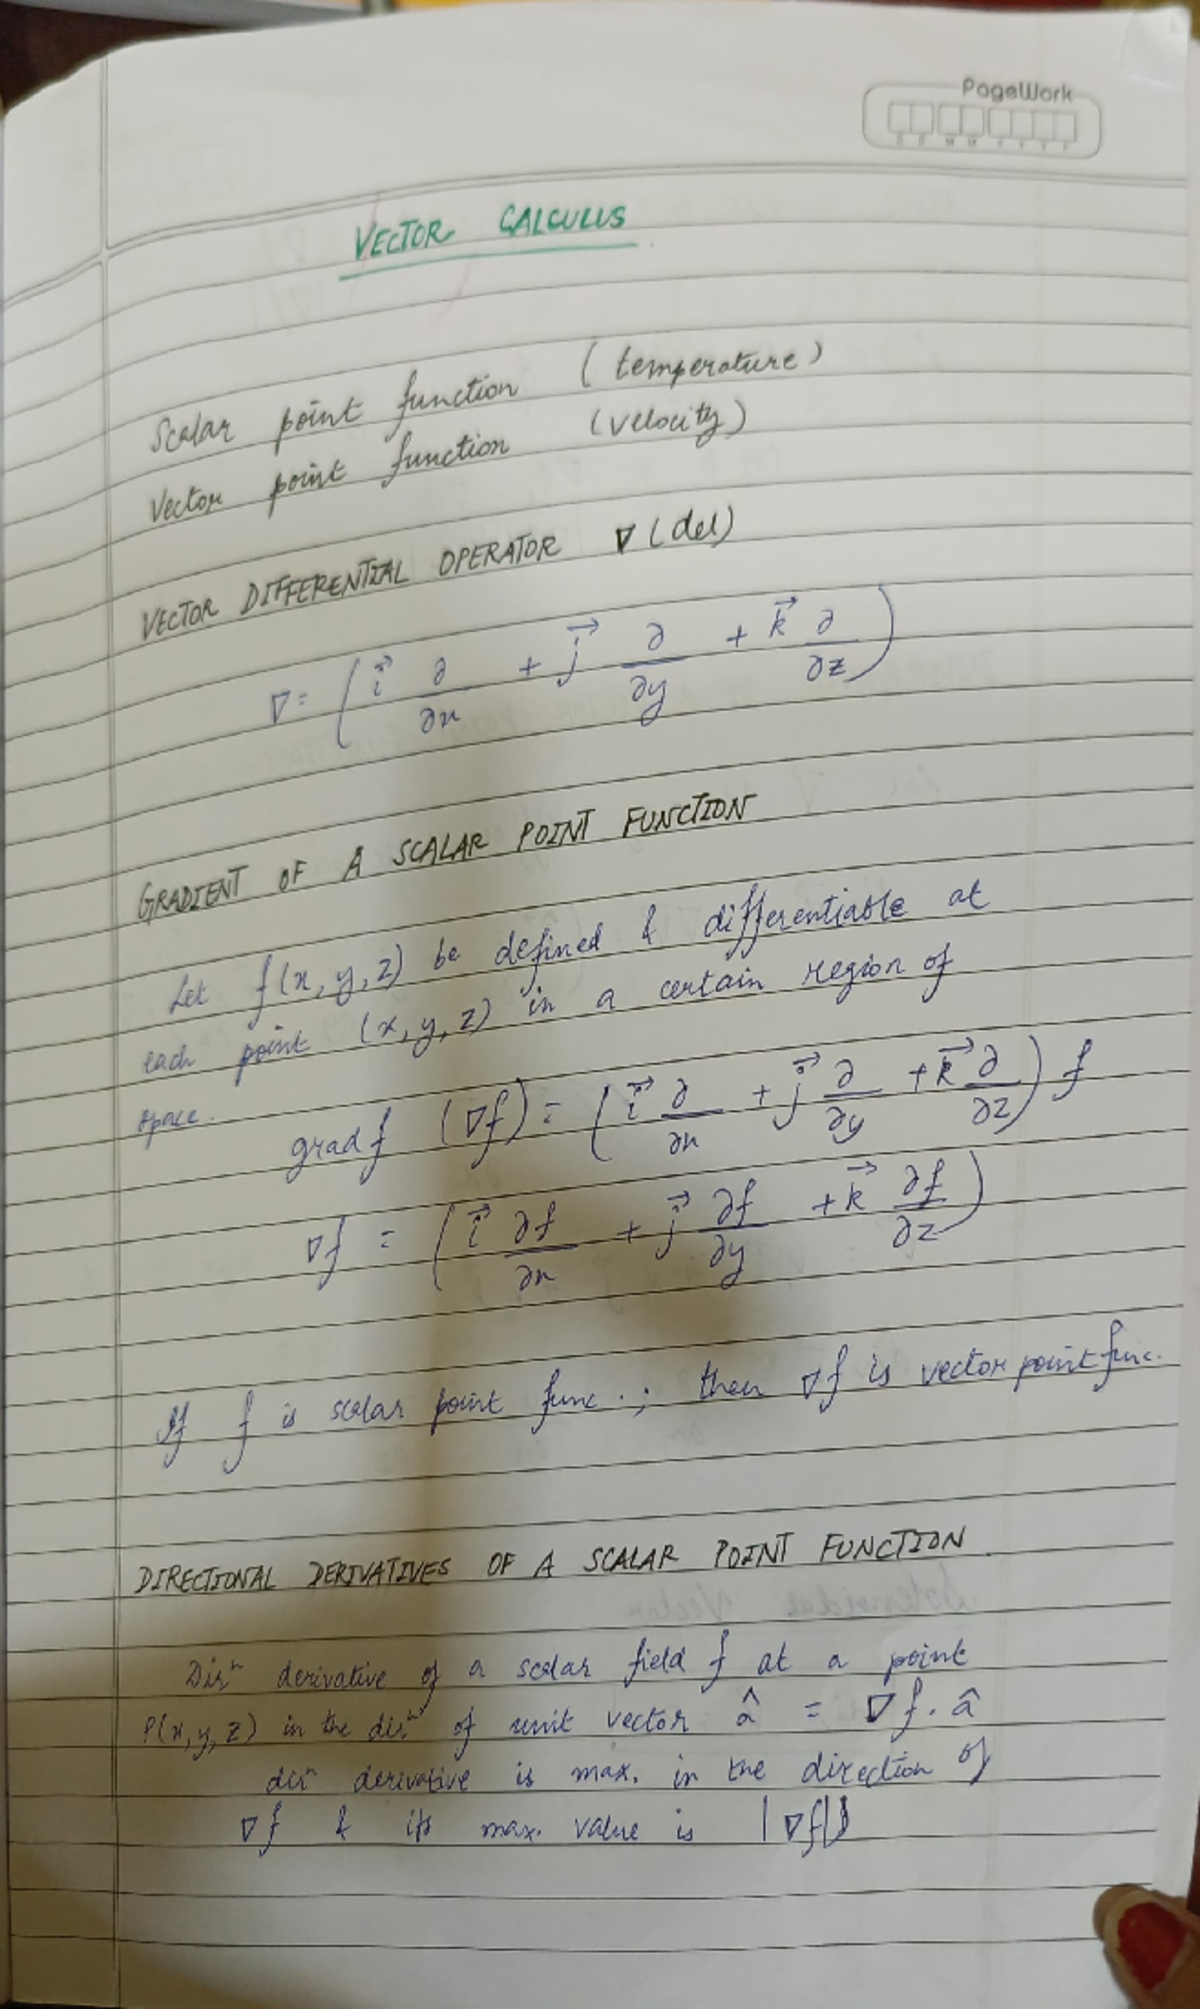 PageWork
D D M M Y Y Y Y
VECTOR CALCULUS
Scalar point function (temperature)
Vector point function (velocity)
VECTOR DIFFERENTIAL OPERATOR ∇ (del)
∇ = (i⃗ ∂/∂x + j⃗ ∂/∂y + k⃗ ∂/∂z)
GRADIENT OF A SCALAR POINT FUNCTION
Let f(x, y, z) be defined & differentiable at
each point (x, y, z) in a certain region of
space.
grad f (∇f) = (i⃗ ∂/∂x + j⃗ ∂/∂y + k⃗ ∂/∂z) f
∇f = (i⃗ ∂f/∂x + j⃗ ∂f/∂y + k⃗ ∂f/∂z)
If f is scalar point func.; then ∇f is vector point func.
DIRECTIONAL DERIVATIVES OF A SCALAR POINT FUNCTION
Dirⁿ derivative of a scalar field f at a point
P(x, y, z) in the dirⁿ of unit vector â = ∇f. â
dirⁿ derivative is max. in the direction of
∇f & its max. value is |∇f|